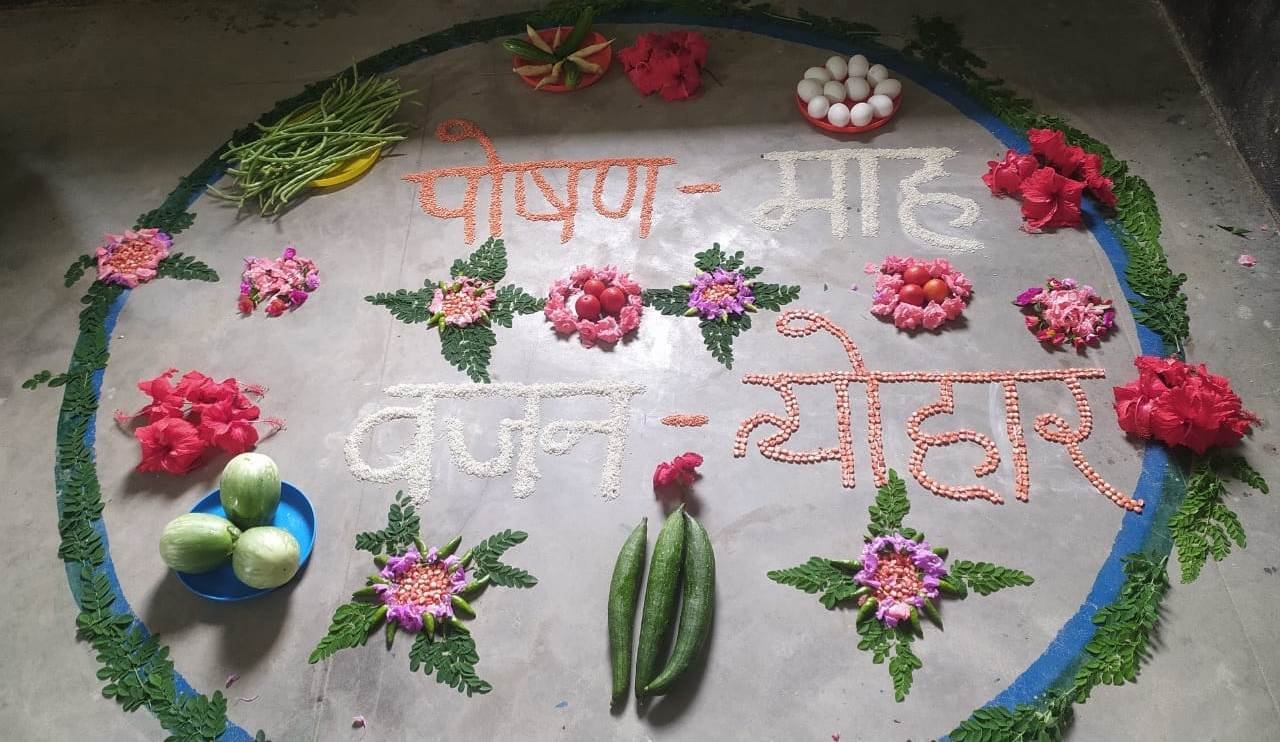 पोषण - माह
वजन - योहार